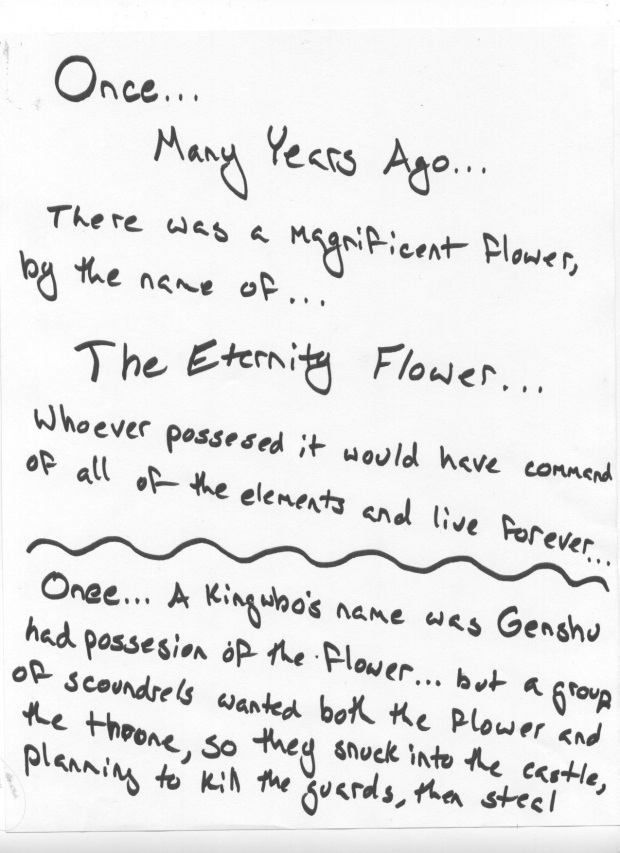 Once...
Many Years Ago...
There was a magnificent flower,
by the name of...
The Eternity Flower...
Whoever possesed it would have command
of all of the elements and live forever...
Once... A King who's name was Genshu
had possesion of the flower... but a group
of scoundrels wanted both the flower and
the throne, so they snuck into the castle,
planning to kill the guards, then steal